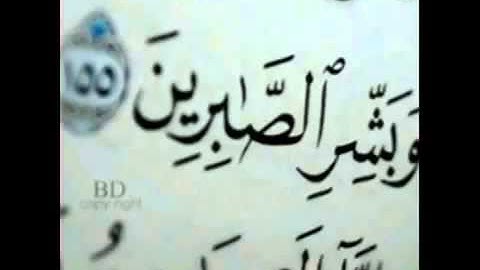 وَبَشِّرِ ٱلصَّٰبِرِينَ ١٥٥
BD
copy right